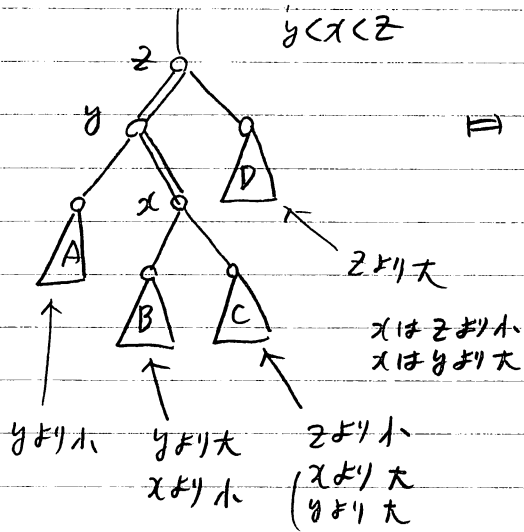 y<x<z
z
y
D
x
A
zより大
B
C
xはzより小
xはyより大
yより小
yより大
xより小
zより小
xより大
yより大